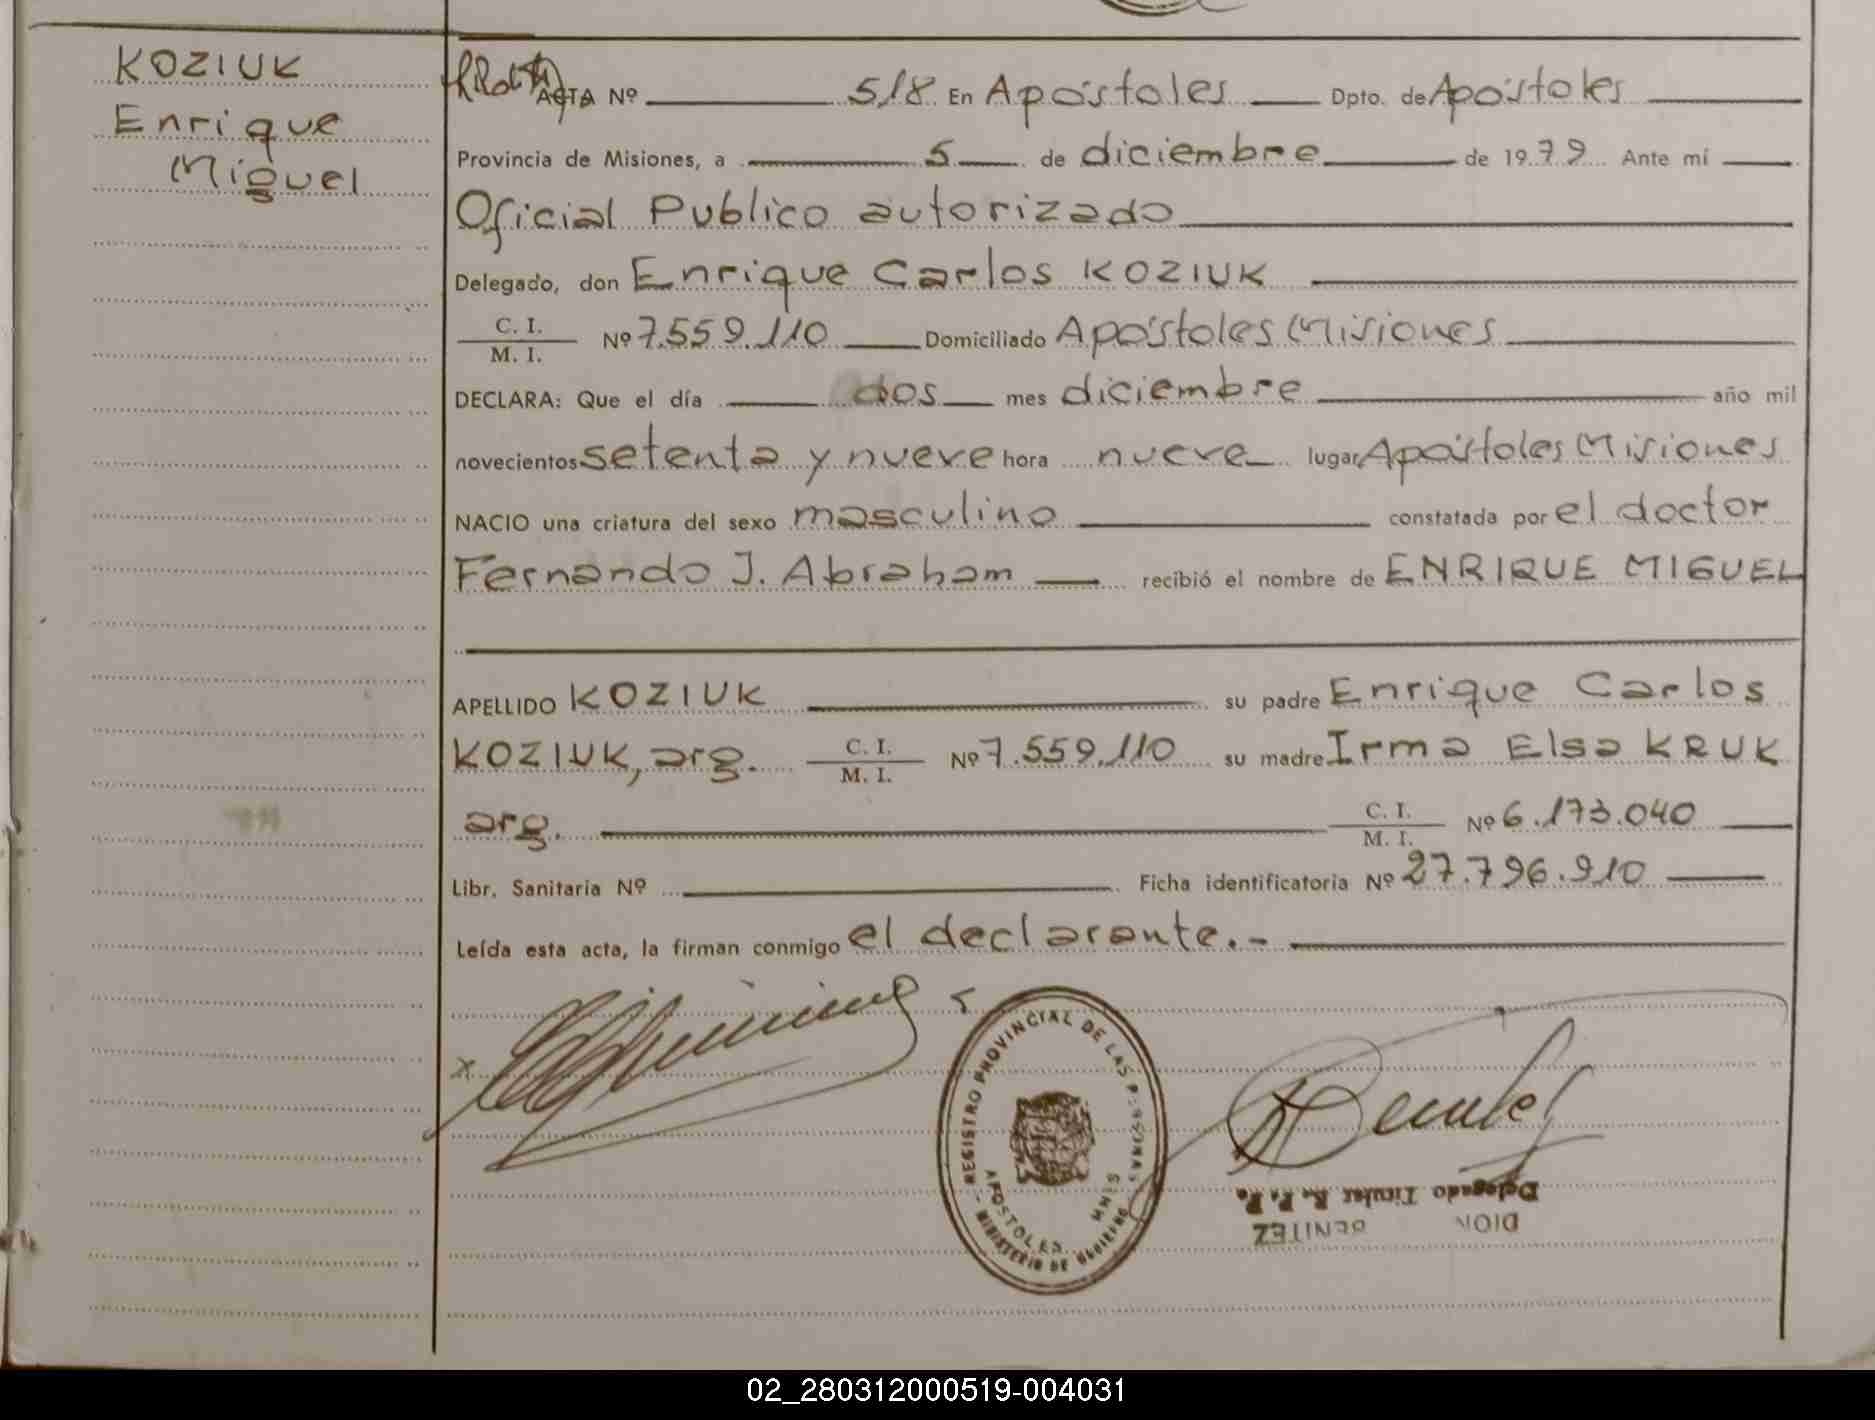 KOZIUK
Enrique
Miguel
ACTA Nº 518 En Apóstoles Dpto. de Apóstoles
Provincia de Misiones, a 5 de diciembre de 1979 Ante mí
Oficial Publico autorizado
Delegado, don Enrique Carlos KOZIUK
C. I.
M. I. Nº 7.559.110 Domiciliado Apóstoles Misiones
DECLARA: Que el día dos mes diciembre año mil
novecientos setenta y nueve hora nueve lugar Apóstoles Misiones
NACIO una criatura del sexo masculino constatada por el doctor
Fernando J. Abraham recibió el nombre de ENRIQUE MIGUEL
APELLIDO KOZIUK su padre Enrique Carlos
KOZIUK, arg. C. I. M. I. Nº 7.559.110 su madre Irma Elsa KRUK
arg. C. I. M. I. Nº 6.173.040
Libr. Sanitaria Nº Ficha identificatoria Nº 27.796.910
Leída esta acta, la firman conmigo el declarante.-
REGISTRO PROVINCIAL DE LAS PERSONAS
MINISTERIO DE GOBIERNO
APOSTOLES MNES
Delegado Titular R. P. P.
BENITEZ
02_280312000519-004031